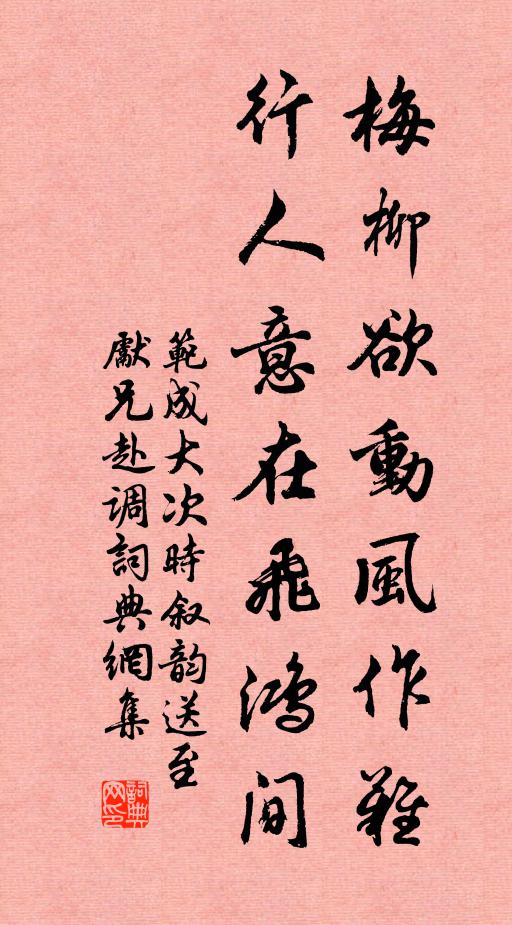 梅柳欲動風作難
行人意在飛鴻间
範成大次時叙韵送至
獻兄赴调詞典網集
詞典网印